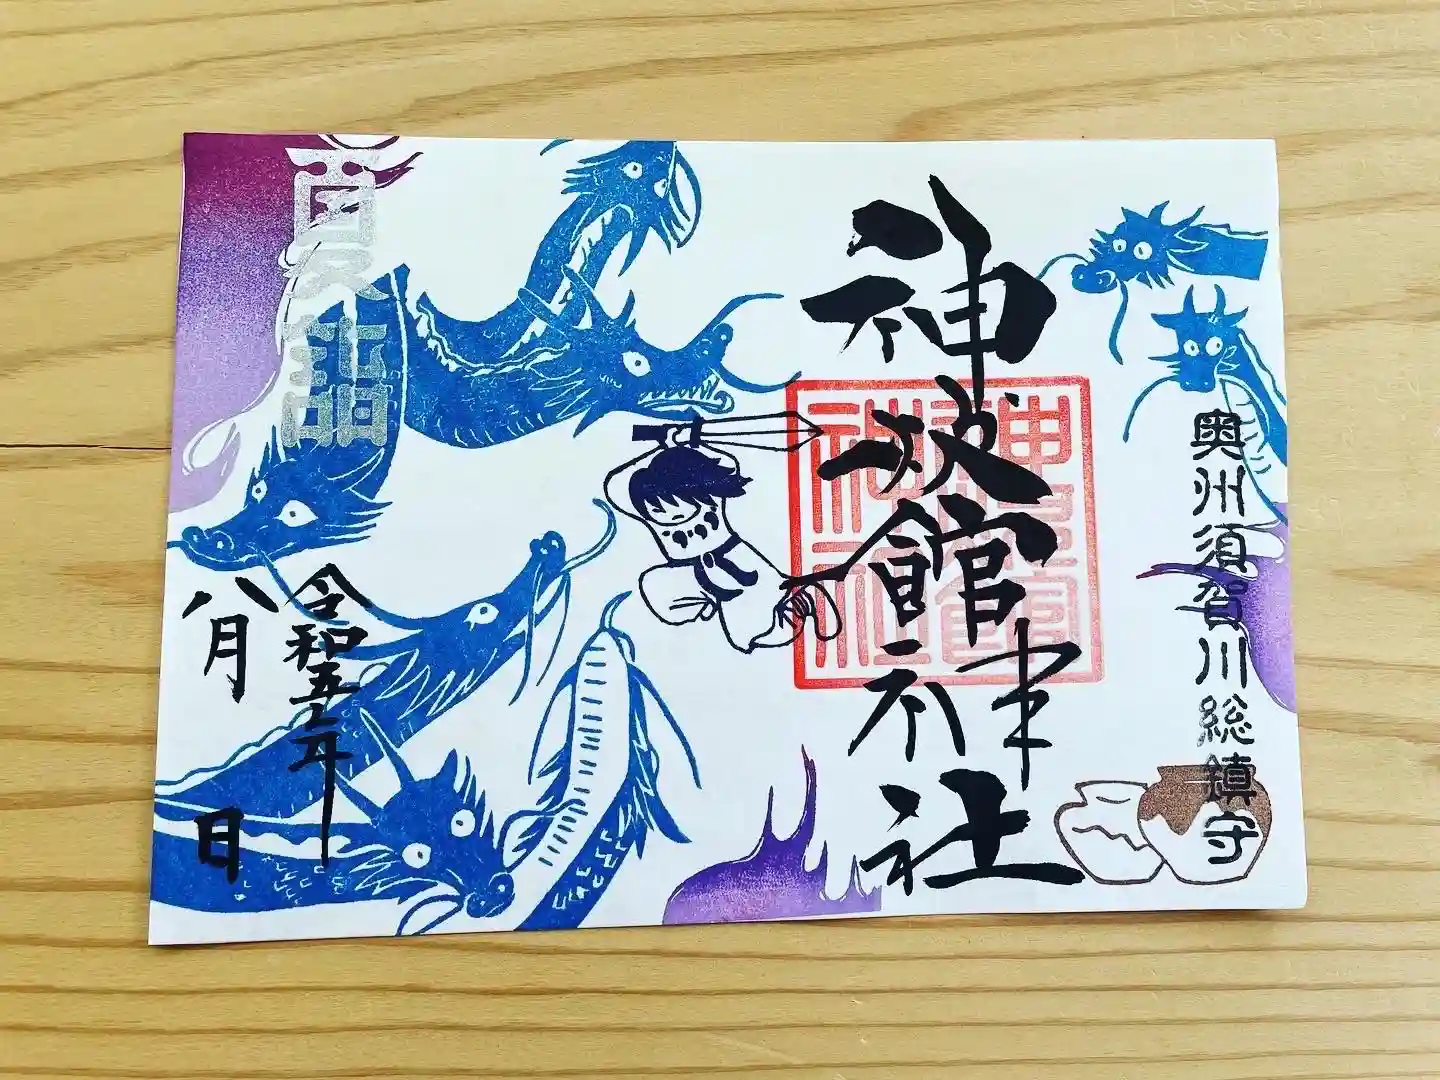 奥州須賀川総鎮守
神炊館神社
夏詣
令和五年
八月 日